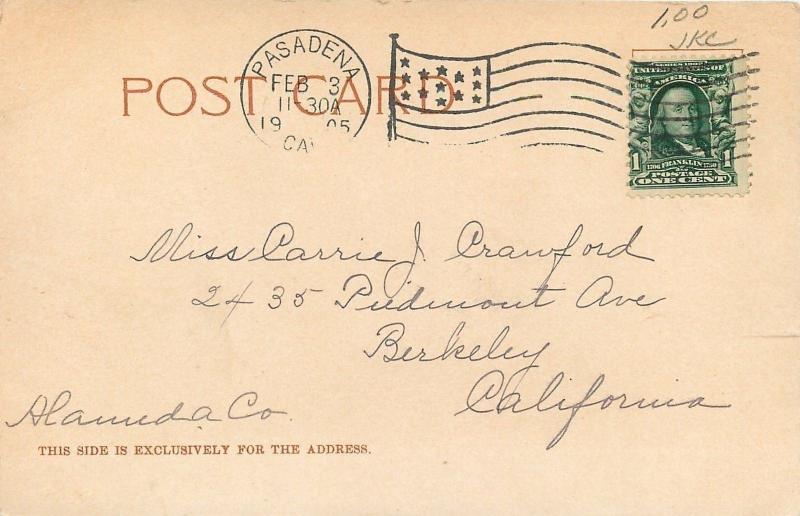 1.00
JKC
POST CARD
PASADENA
FEB 3
11 30A
19 05
CAL
SERIES 1902
UNITED STATES OF
AMERICA
1706 FRANKLIN 1790
1 POSTAGE 1
ONE CENT
Miss Carrie J. Crawford
2435 Piedmont Ave
Berkeley
California
Alameda Co.
THIS SIDE IS EXCLUSIVELY FOR THE ADDRESS.